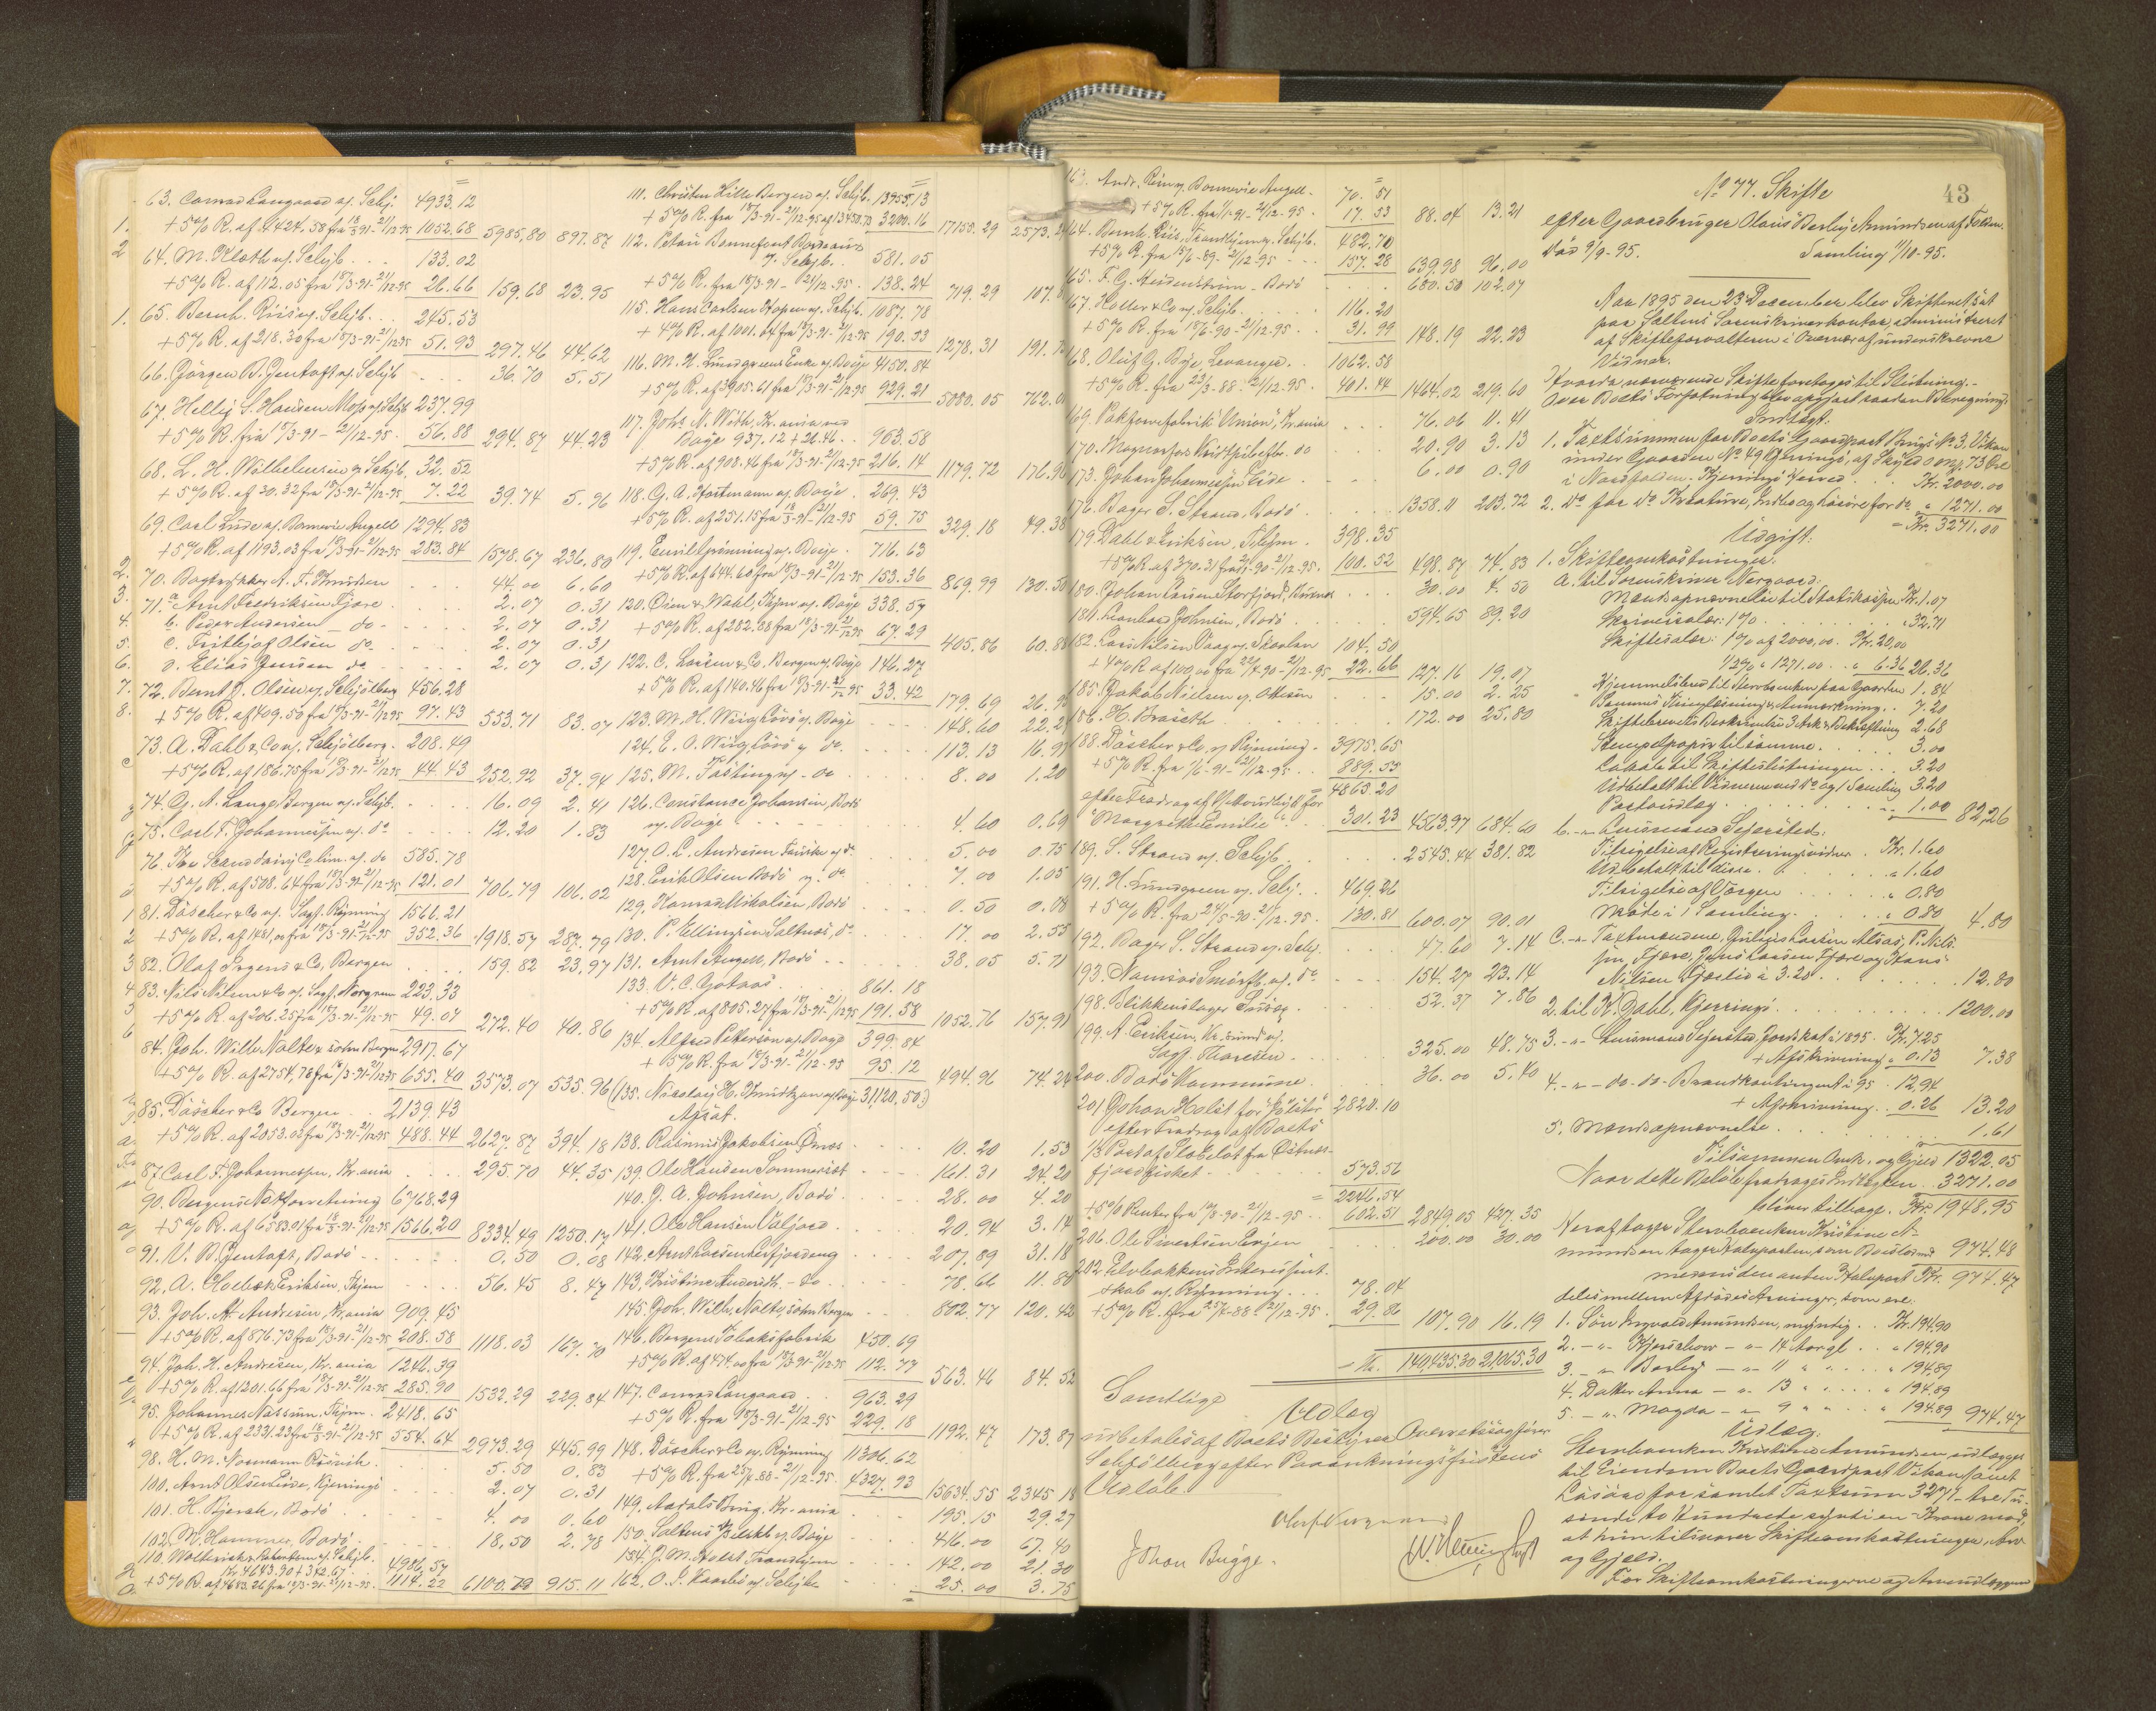 63. Conrad Langaard v/ Selj. 4933.12
+5% R. af 4424.58 fra 18/3-91-21/12-95 1052.68 5985.80 897.87
64. M. Kloth v/ Seljb. 133.02
+5% R. af 112.05 fra 18/3-91-21/12-95 26.66 159.68 23.95
65. Bernh. Riis v/ Seljb. 245.53
+5% R. af 218.30 fra 18/3-91-21/12-95 51.93 297.46 44.62
66. Jörgen B. Gentoft v/ Seljb 36.70 5.51
67. Hellig S. Hansen Moss v/ Seljb 237.99
+5% R. fra 18/3-91-21/12-95. 56.88 294.87 44.23
68. L. H. Wilhelmsen v/ Seljb. 32.52
+5% R. af 30.32 fra 18/3-91-21/12-95 7.22 39.74 5.96
69. Carl Lude v/ Bonnevie Angell 1294.83
+5% R. af 1193.03 fra 18/3-91-21/12-95 283.84 1578.67 236.80
70. Bogtrykker A. F. Knudsen 44.00 6.60
71. a Arnt Fredriksen Fjære 2.07 0.31
b. Peder Andersen do 2.07 0.31
c. Frithjof Olsen do 2.07 0.31
d. Elias Jensen do 2.07 0.31
72. Bernt J. Olsen v/ Seljölberg 456.28
+5% R. af 409.50 fra 18/3-91-21/12-95 97.43 553.71 83.07
73. A. Dahl & Co v/ Seljölberg. 208.49
+5% R. af 186.75 fra 18/3-91-21/12-95 44.43 252.92 37.94
74. G. A. Lange, Bergen v/ Seljb. 16.09 2.41
75. Carl F. Johannessen v/ do 12.20 1.83
76. The Scand dairy Co lim. v/ do 585.78
+5% R. af 508.64 fra 18/3-91-21/12-95 121.01 706.79 106.02
81. Däscher & Co v/ Sagf. Rynning 1566.21
+5% R. af 1481,00 fra 18/3-91-21/12-95 352.36 1918.57 287.79
82. Olaf Irgens & Co, Bergen 159.82 23.97
83. Nils Nilsen & Co v/ Sagf. Norgreen 223.33
+5% R. af 206.25 fra 18/3-91-21/12-95 49.07 272.40 40.86
84. Joh. Wilh. Nolte & sohn Bergen 2917.67
+5% R. af 2754,78 fra 18/3-91-21/12-95 655.40 3573.07 535.96
85. Däscher & Co Bergen 2139.43
+5% R. af 2053.03 fra 18/3-91-21/12-95 488.44 2627.87 394.18
87. Carl F. Johannessen, Kr.ania 295.70 44.35
90. Bergens Notforretning 6768.29
+5% R. af 6583.01 fra 18/3-91-21/12-95 1566.20 8334.49 1250.17
91. V. B. Gentoft, Bodö 0.50 0.08
92. A. Holbæk Eriksen, Thjem 56.45 8.47
93. Joh. H. Andresen, Kr.ania 909.45
+5% R. af 876.73 fra 18/3-91-21/12-95 208.58 1118.03 167.70
94. Joh. H. Andresen, Kr.ania 1246.39
+5% R. af 1201.66 fra 18/3-91-21/12-95 285.90 1532.29 229.84
95. Johannes Nossum, Thjem. 2418.65
+5% R. af 2331.23 fra 18/3-91-21/12-95 554.64 2973.29 445.99
98. H. M. Normann Rösvik. 5.50 0.83
100. Arnt Olsen Eide, Kjerringö 2.07 0.31
101. H. Bjervik, Bodö 4.00 0.60
102. M. Hammer, Bodö 18.50 2.78
110. Wolterick & Robertson v/ Seljb.
Kr. 4643.90 + 342.67 4986.57
+5% R. af 4683.26 fra 18/3-91-21/12-95. 1114.22 6100.79 915.11
111. Christen Lille Bergen v/ Seljb. 13955.13
+5% R. fra 18/3-91-21/12-95 af 13450.73 3200.16 17155.29
112. Petau Bonnefont Bordeaux
v/ Seljb. 581.05
+5% R. fra 18/3-91-21/12-95. 138.24 719.29
115. Hans Carlsen Hopen v/ Seljb. 1087.78
+4% R. af 1001.04 fra 18/3-91-21/12-95 190.53 1278.31
116. M. H. Lundgreens Enke v/ Boije 4150.84
+5% R. af 3905.61 fra 18/3-91-21/12-95 929.21 5080.05
117. Johs N. With, Kr.ania ved
Boije 937.12 + 26.46. 963.58
+5% R. af 908.46 fra 18/3-91-21/12-95 216.14 1179.72 176.96
118. G. A. Hartmann v/ Boije. 269.43
+5% R. af 251.15 fra 18/3-91-21/12-95 59.75 329.18 49.38
119. Emil Grönning v/ Boije. 716.63
+5% R. af 644.60 fra 18/3-91-21/12-95 153.36 869.99 130.50
120. Öien & Wahl, Thjem v/ Boije 338.57
+5% R. af 282.88 fra 18/3-91-21/12-95 67.29 405.86 60.88
122. C. Larsen & Co. Bergen v/ Boije 146.27
+5% R. af 140.46 fra 18/3-91-21/12-95 33.42 179.69
123. M. H. Wiig Lövö v/ Boije 148.60
124. E. A. Wiig, Lövö v/ do. 113.13
125. M. Tösting v/ do 8.00 1.20
126. Constance Johansen, Bodö
v/ Boije 4.60 0.69
127. O. L. Andresen Fauske v/ do 5.00 0.75
128. Erik Olsen Bodö v/ do 7.00 1.05
129. Konrad Mikalsen, Bodö 0.50 0.08
130. P. Ellingsen Saltnes, do 17.00 2.55
131. Arnt Angell, Bodö 38.05 5.71
133. V. C. Gotaas 861.18
+5% R. af 805.27 fra 18/3-91-21/12-95 191.58 1052.76 157.91
134. Alfred Pettersen v/ Boije 399.84
+5% R. fra 18/3-91-21/12-95 95.12 494.96 74.24
(135. Nikolay H. Knudtzon v/ Boije 31,120,50)
Afsat.
138. Rasmus Jakobsen Örnes 10.20 1.53
139. Ole Hansen Sommerset 161.31 24.20
140. J. A. Johnsen, Bodö 28.00 4.20
141. Ole Hansen Valjord 20.94 3.14
142. Arnt Larsen Leifjordeng 207.89 31.18
143. Kristine Andersdt. - do. 78.66 11.80
145. Joh. Wilh. Nolte, sohn Bergen 802.77 120.42
146. Bergens Tobaksfabrik 450.69
+5% R. af 474.00 fra 18/3-91-21/12-95 112.77 563.46 84.52
147. Conrad Langaard 963.29
+5% R. fra 18/3-91-21/12-95 229.18 1192.47 173.87
148. Däscher & Co v/ Rynning 11306.62
+5% R. fra 25/4-88-21/12-95. 4327.93 15634.55 2345.18
149. Aadals Brug. Kr.ania 195.15 29.27
150. Saltens v/ Boije 446.00 67.40
154. J. M. Holst Trondhjem 142.00 21.30
162. O. J. Kaarbö v/ Seljb 25.00 3.75
163. Andr. Rein v/ Bonnevie Angell. 70.51
+5% R. fra 1/1-91-21/12-95. 17.53 88.04 13.21
164. Bernh. Riis, Trondhjem v/ Seljb. 482.70
+5% R. fra 15/6-89-21/12-95 157.28 639.98 96.00
165. F. G. Heidenstrüm - Bodö 680.50 102.07
167. Holter & Co v/ Seljb. 116.20
+5% R. fra 18/6-90-21/12-95. 31.99 148.19 22.23
168. Oluf J. Böe Levanger. 1062.58
+5% R. fra 23/5-88-21/12-95. 401.44 1464.02 219.60
169. Pakfarvefabrik "Union", Kr.ania 76.06 11.41
170. Magnorfos Kridtpibefbr. do 20.90 3.13
173. Johan Johannessen Eide 6.00 0.90
176. Bager S. Strand, Bodö 1358.11 203.72
179. Dahl & Eriksen, Tthjem. 398.35
+5% R. af 370.31 fra 21/7-90-21/12-95. 100.52 498.87 74.83
180. Johan Larsen Storfjord, Beiarn 30.00 4.50
181. Leonhard Johnsen, Bodö 594.65 89.20
182. Lars Nilsen Vaag v/ Skavlan 104.50
+4% R. af 100,00 fra 22/4-90-21/12-95 22.66 127.16 19.07
185. Jakob Nielsen v/ Ottesen 15.00 2.25
186. H. Braseth 172.00 25.80
188. Däscher & Co v/ Rynning. 3975.65
+5% R. fra 1/6-91-21/12-95 889.55
= 4865.20
efter Fradrag af for
"Margrethe Emilie" 301.23 4563.97 684.60
189. S. Strand v/ Seljb. 2545.44 381.82
191. H. Lundgreen v/ Selj. 469.26
+5% R. fra 24/5-90-21/12-95. 130.81 600.07 90.01
192. Bager S. Strand v/ Selj. 47.60 7.14
193. Namsos Smörfb. v/ do 154.27 23.14
198. Blikkenslager Sörög 52.37 7.86
199. A. Eriksen, Kr.sund v/
Sagf. Thoresen 325.00 48.75
200. Bodö Kommune 36.00 5.40
201 Johan Holst for "Jölster" 2820.10
efter Fradrag af Boets
1/2 Part af Storelot fra Östnes-
fjordfisket 573.56
= 2246.54
+5% Renter fra 18/8-90-21/12-95 602.51 2849.05 427.35
206. Ole Sivertsen Evjen 200.00 30.00
202. Elvebakkens Interessent-
skab v/ Rynning 78.04
+5% R. fra 25/4-88-21/12-95. 29.86 107.90 16.19
= Kr. 140,435.30 21,065.30
Samtlige
Udlæg
udbetales af Boets Bestyrer Overretssagfører
Seljölberg efter Paaankningsfristens
Udlöb.
Johan Bugge.
43
No 77. Skifte
efter Gaardbruger Olaus Berley Amundsen af
död 9/9-95. Samling 11/10-95.
Aar 1895 den 23 December blev Skifteret sat
paa Saltens Sorenskriverkontor, administreret
af Skifteforvalteren i Overvær af underskrevne
Vidner.
Hvorda nærværende Skifte foretoges til Slutning.-
Over Boets Forfatning blev opgjort saadan Beregning:
Indtægt:
1. Taxtsummen for Boets Gaardpart Brugs No 3, Vikan
under Gaarden No 49 Kjerringö, af Skyld 0 Mk 73 Öre
i Nordfolden-Kjerringö Herred Kr. 2000.00
2. Do for do Kreature, Indbo og Lösöre for do " 1271.00
= Kr. 3271.00
Udgift:
1. Skifteomkostninger:
a. til Sorenskriver Norgaard:
Mandsopnævnelse til Statskassen Kr. 1.07
Skriversalær: 1% " 32.71
Skiftesalær: 1% af 2000,00. Kr. 20,00
1/2% " 1271.00 " 6.36 26.36
Hjemmelsbrev til Stervboenken paa Gaarden 1.84
Sammes Thinglæsning & Anmærkning 7.20
Skiftebrevets Beskrivelse 3 Ark & Bekræftning 2.68
Stempelpapir til samme 3.00
Lokale til Skifteslutningen 3.20
Udbetalt til Vidnerne ved do og 1 Samling 3.20
Portoudlæg 1.00 82,26
b. -"- Lensmand Sejersted:
Tilsigelse af Registreringsvidner Kr. 1.60
Udbetalt til disse " 1.60
Tilsigelse af Værgen " 0.80
Möde i 1 Samling " 0.80 4.80
c. -"- Taxtmændene, Julius Larsen Alsos, P. Nils-
sen, Fjære, Jens Larsen Fjære og Hans
Nilsen Fjærlid à 3.20 12.80
2. til K. Dahl, Kjerringö 1200.00
3. -"- Lensmand Sejersted, Jordskat i 1895. Kr. 7.25
+ Afskrivning " 0.13 7.38
4. -"- do. do. Brandkontingent i 95 12.94
+ Afskrivning 0.26 13.20
5. Mandsopnævnelse 1.61
Tilsammen Omk. og Gjeld 1322.05
Naar dette Belöb fradrages Indtægten 3271.00
bliver tilbage. Kr. 1948.95
Heraf tager Stervboenken Kristine A-
mundsen tager Halvparten, som Boeslod med 974.48
mens den anden Halvpart Kr. 974.47
deles mellem Afdödes Arvinger, som ere:
1. Sön Ingvald Amundsen, myndig Kr. 194.90
2. -"- Hjerschow -"- 14 Aar gl. " 194.90
3. -"- Berley -"- 11 " " 194.89
4. Datter Anna -"- 13 " " 194.89
5. -"- Magda -"- 9 " " 194.89 974.47
Udlæg:
Stervboenken Kristine Amundsen udlægges
til Eiendom Boets Gaardpart Vikan samt
Lösöre for samlet Taxtsum 3271 - tre Tu-
sinde to Hundrede sytti en - Krone mod,
at hun tilsvarer Skifteomkostninger, Arv
og Gjeld.
For Skifteomkostningerne og Arveudlæggene